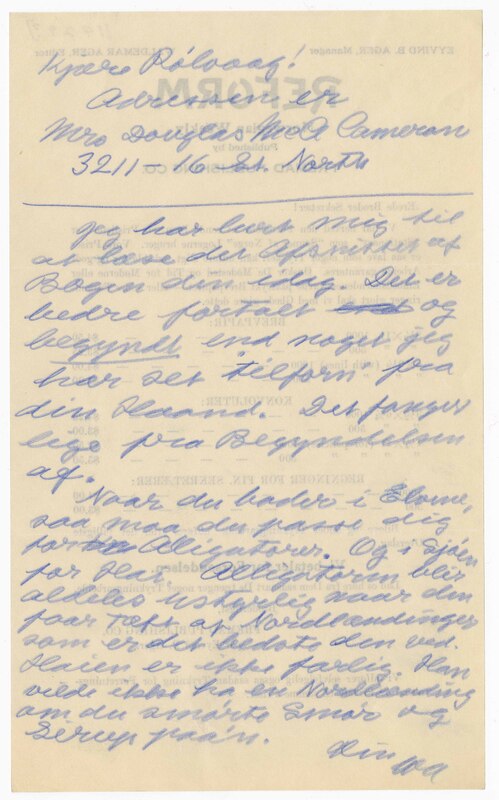 Kjære Rölvaag!
Adressen er
Mrs Douglas McA Cameron
3211 – 16 St. North
Jeg har lurt mig til
at læse det Afsnittet af
Bogen din idag. Det er
bedre fortalt og
begyndt end noget jeg
har set tilforn fra
din Haand. Det fanger
lige fra Begyndelsen
af.
Naar du bader i Elome,
saa maa du passe dig
for Aligatorer. Og i Sjøen
for Hai. Alligatoren blir
aldeles ustyrlig naar den
faar Tæft af Nordlændinger
som er det bedste den ved.
Haien er ikke farlig. Han
vilde ikke ha en Nordlænding
om du smørte Smør og
Serup paa'n.
Din
WA
EYVIND B. AGER, Manager
WALDEMAR AGER, Editor
REFORM
Published by